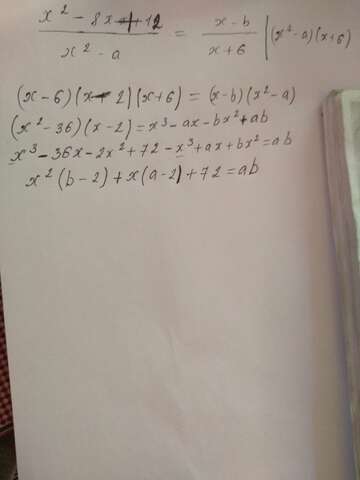 x² - 8x + 12 / x² - a = x - b / x + 6 | (x² - a)(x + 6)
(x - 6)(x - 2)(x + 6) = (x - b)(x² - a)
(x² - 36)(x - 2) = x³ - ax - bx² + ab
x³ - 36x - 2x² + 72 - x³ + ax + bx² = ab
x² (b - 2) + x(a - 2) + 72 = ab